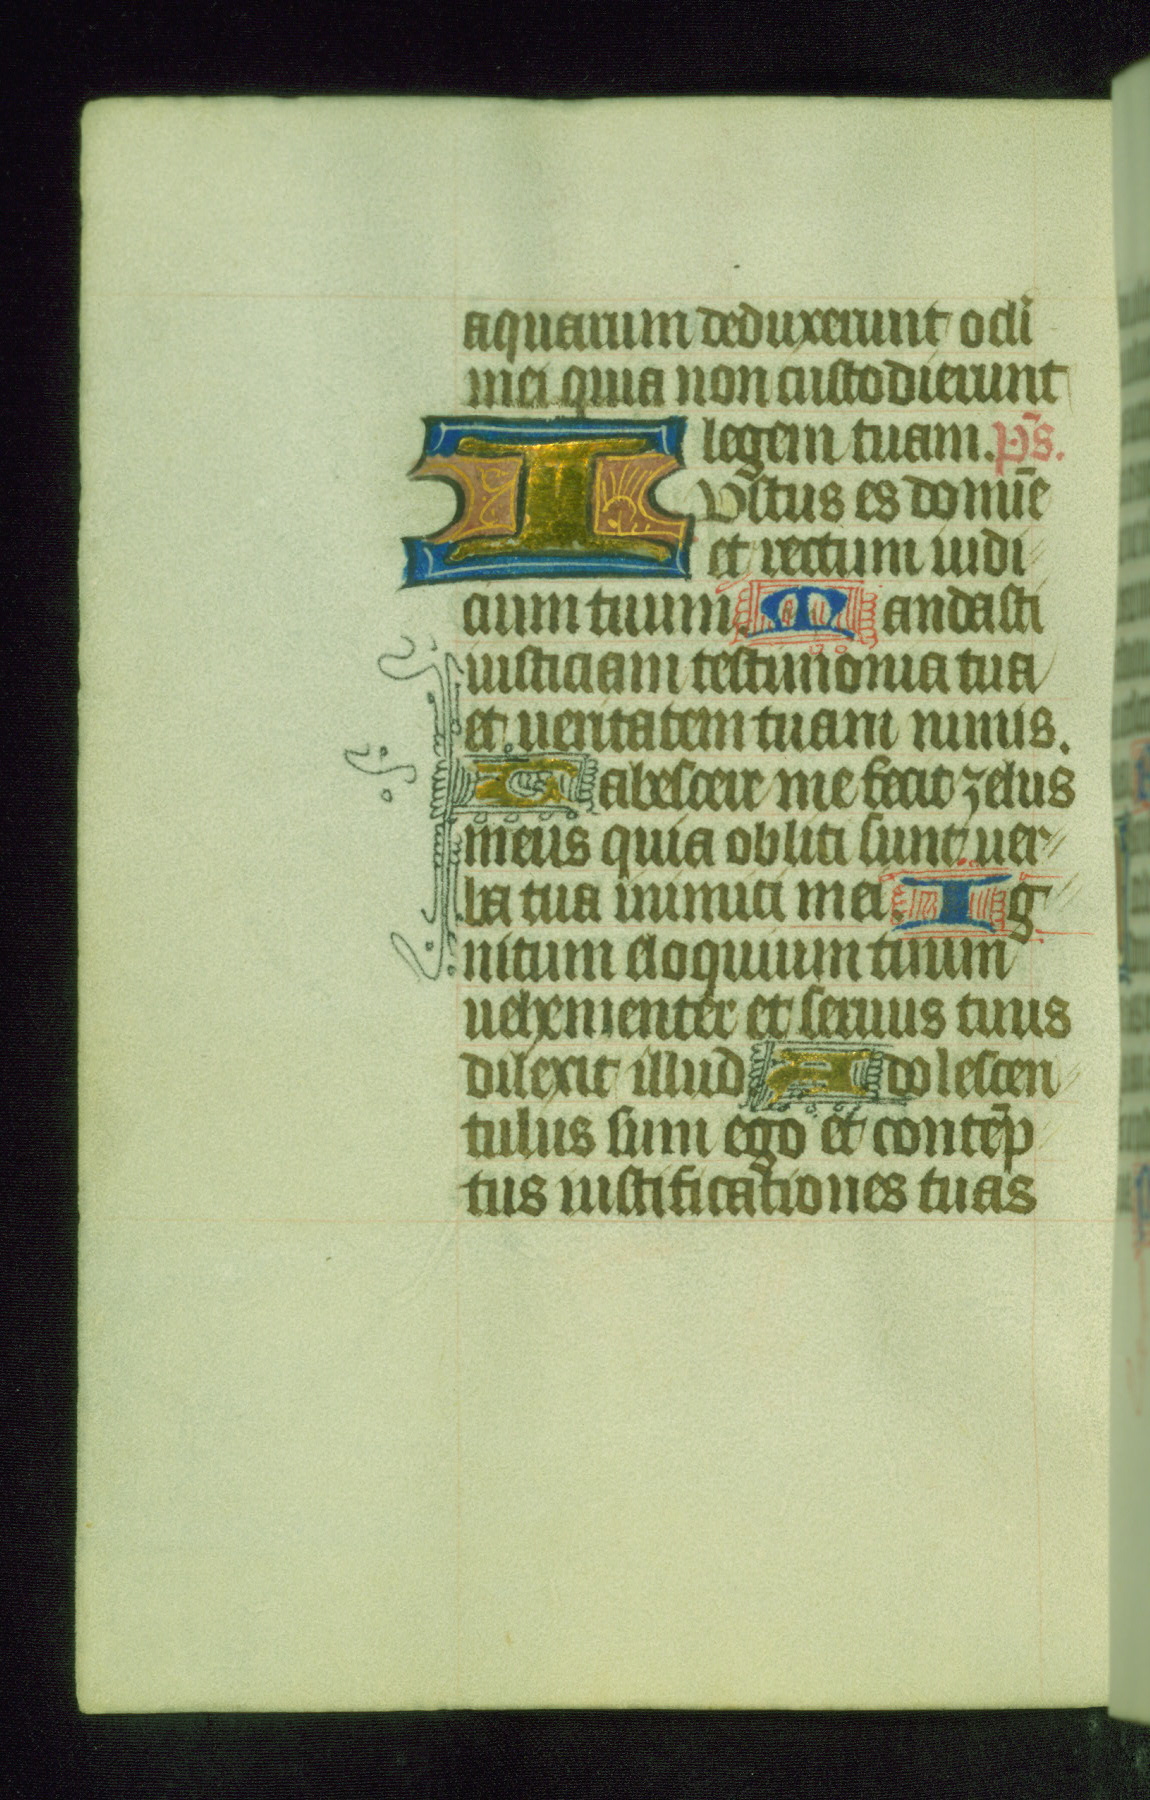 aquarum deduxerunt ocli
mei quia non custodierunt
legem tuam. p̄s.
Iustus es domīe
et rectum iudi
cium tuum. Mandasti
iusticiam testimonia tua
et ueritatem tuam nimis.
Tabescere me fecit zelus
meus quia obliti sunt uer
ba tua inimici mei. Ig
nitum eloquium tuum
uehementer et seruus tuus
dilexit illud. Adolescen
tulus sum ego et contēp
tus iustificationes tuas